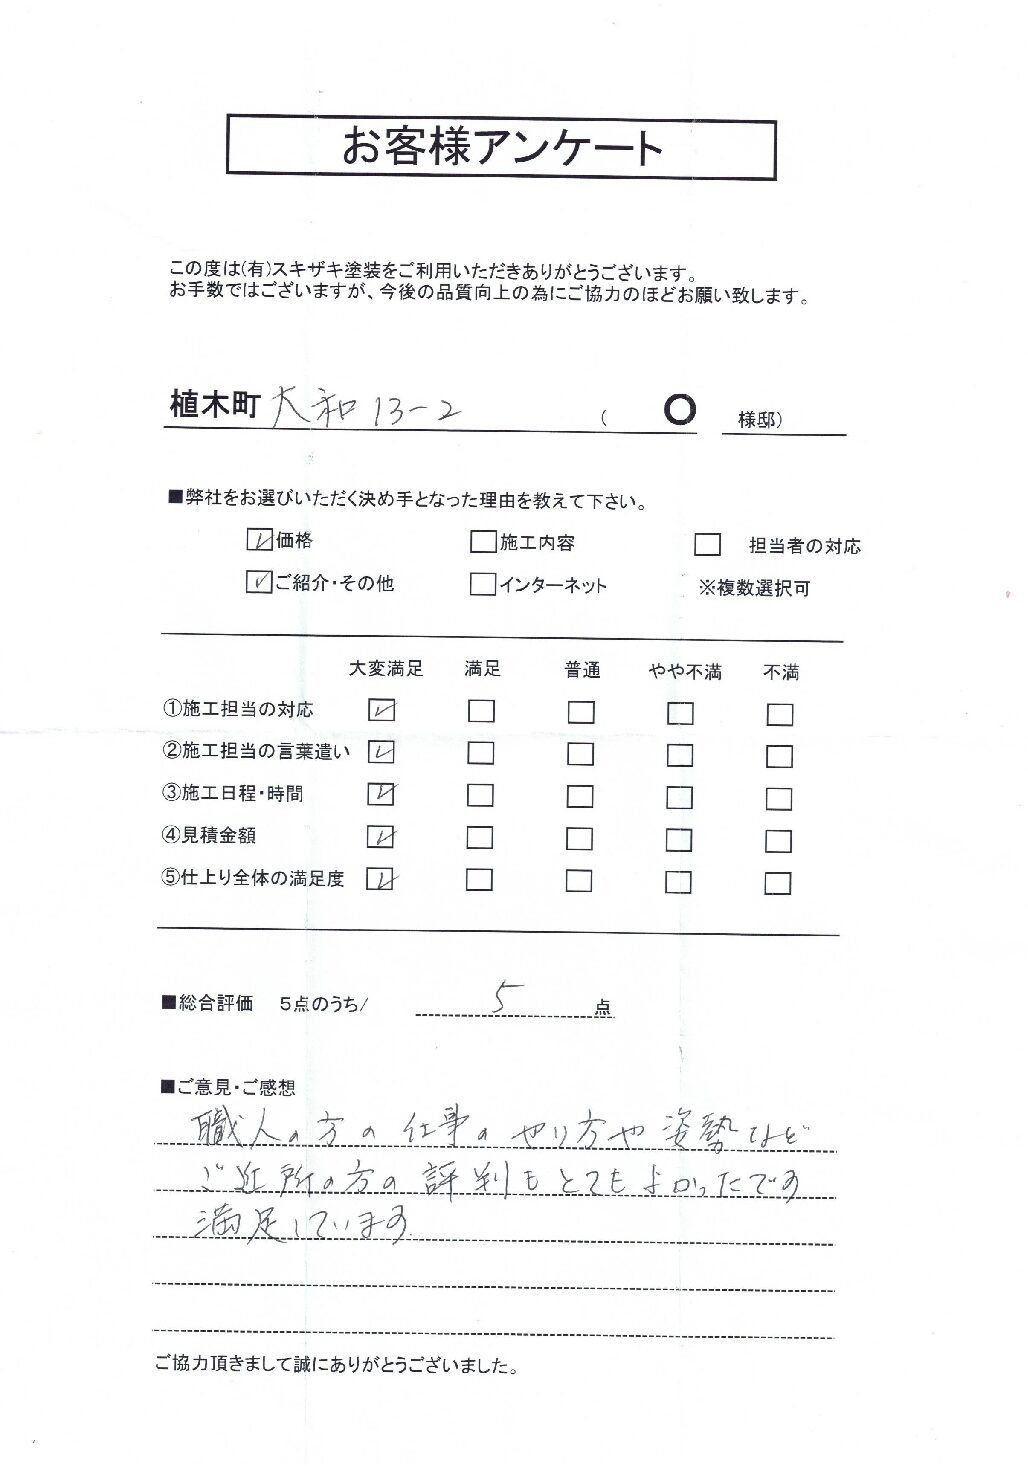 お客様アンケート
この度は(有)スキザキ塗装をご利用いただきありがとうございます。
お手数ではございますが、今後の品質向上の為にご協力のほどお願い致します。
植木町 大和13-2 ( O 様邸)
■弊社をお選びいただく決め手となった理由を教えて下さい。
☑価格 □施工内容 □ 担当者の対応
☑ご紹介・その他 □インターネット ※複数選択可
大変満足 満足 普通 やや不満 不満
①施工担当の対応 ☑ □ □ □ □
②施工担当の言葉遣い ☑ □ □ □ □
③施工日程・時間 ☑ □ □ □ □
④見積金額 ☑ □ □ □ □
⑤仕上り全体の満足度 ☑ □ □ □ □
■総合評価 5点のうち/ 5 点
■ご意見・ご感想
職人の方の仕事のやり方や姿勢など
ご近所の方の評判もとてもよかったです
満足しています
ご協力頂きまして誠にありがとうございました。